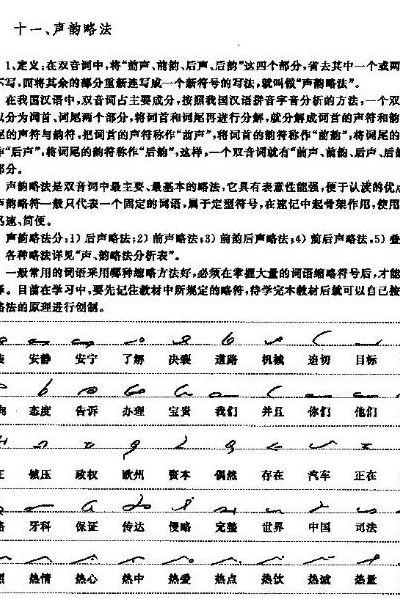 十一、声韵略法
1、定义：在双音词中，将“前声、前韵、后声、后韵”这四个部分，省去其中一个或两
不写，而将其余的部分重新连写成一个新符号的写法，就叫做“声韵略法”。
在我国汉语中，双音词占主要成分，按照我国汉语拼音字音分析的方法，一个双
以分为词首、词尾两个部分，将词首和词尾再进行分解，就分解成词首的声符和韵
尾的声符与韵符，把词首的声符称作“前声”，将词首的韵符称作“前韵”，将词尾的
作“后声”，将词尾的韵符称作“后韵”，这样，一个双音词就有“前声、前韵、后声、后
部分。
声韵略法是双音词中最主要、最基本的略法，它具有表意性能强，便于认读的优点
声韵略符一般只代表一个固定的词语，属于定型符号，在速记中起骨架作用，使用
迅速、简便。
声韵略法分：1）后声略法；2）前声略法；3）前韵后声略法；4）前后声略法，5）叠
各种略法详见“声、韵略法分析表”。
一般常用的词语采用哪种缩略方法好，必须在掌握大量的词语缩略符号后，才能
择。目前在学习中，要先记住教材中所规定的略符，待学完本教材后就可以自己按
略法的原理进行创制。
安静 安宁 了解 决裂 道路 机械 迫切 目标
向 态度 告诉 办理 宝贵 我们 并且 你们 他们
正 镇压 政权 欧州 资本 偶然 存在 汽车 正在
路 牙科 保证 传达 侵略 完整 世界 中国 司法
照 热情 热心 热中 热爱 热点 热饮 热诚 热量